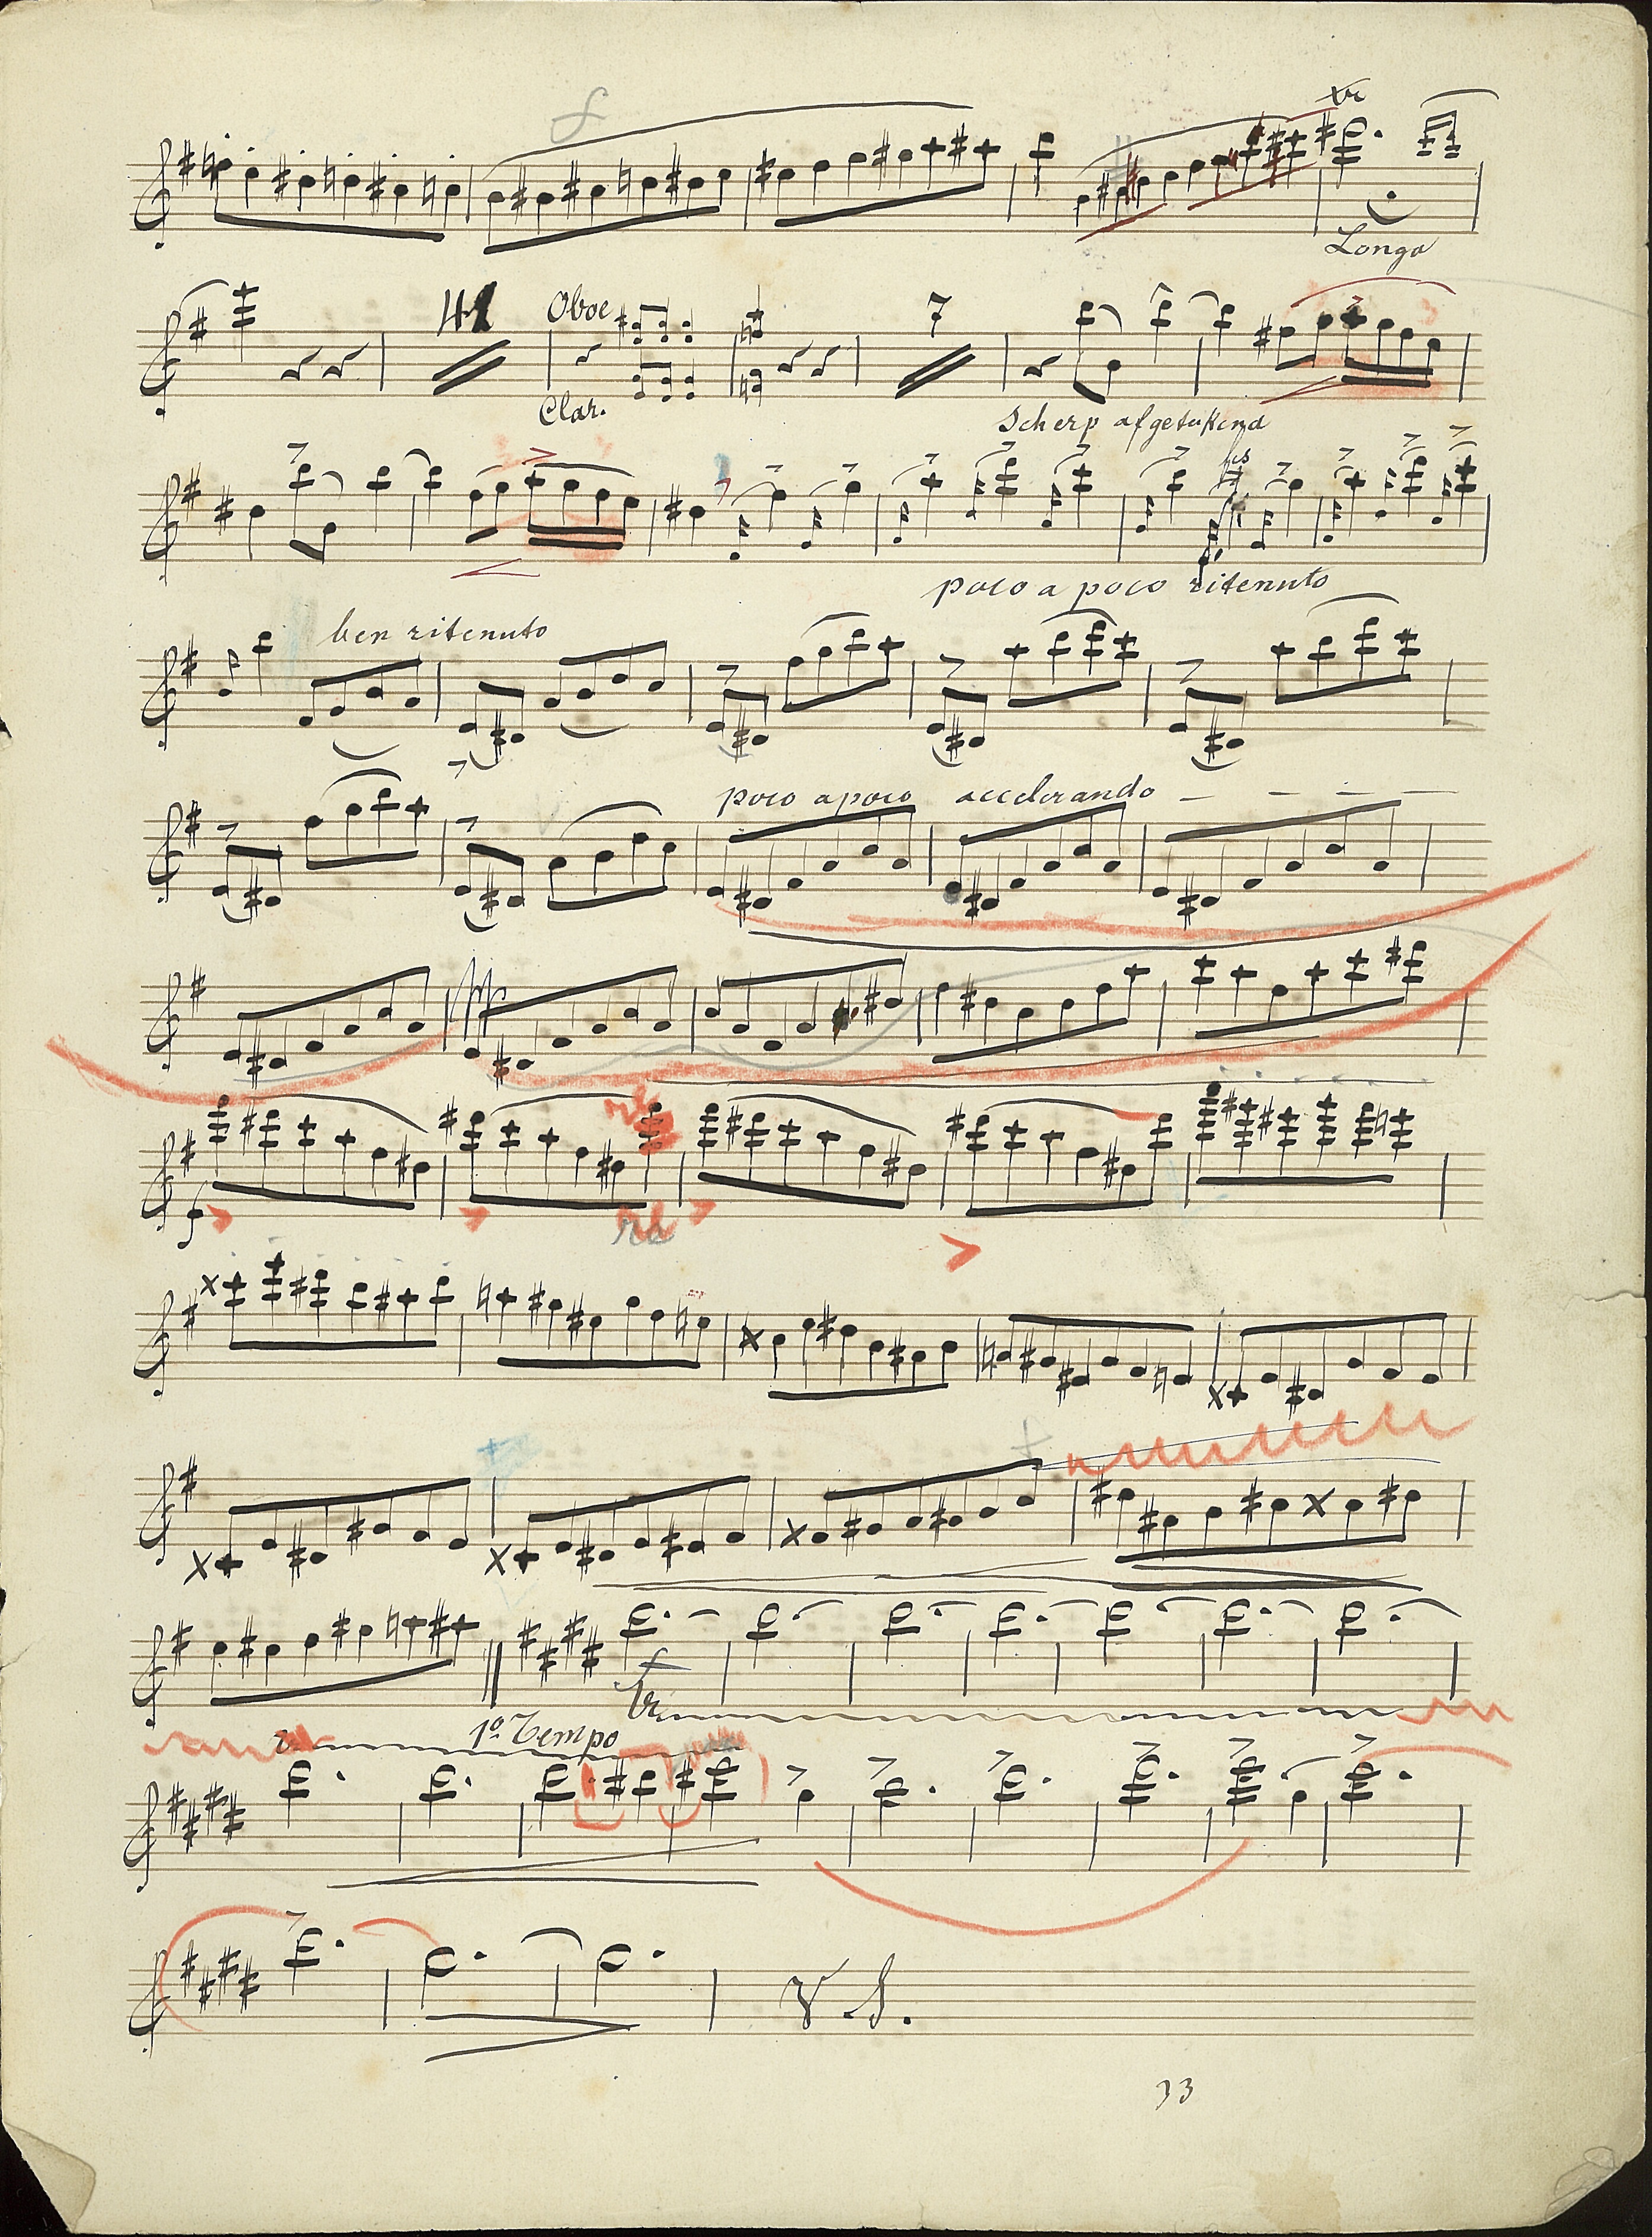 tr
Longa
41
Oboe
7
Clar.
Scherp afgetekend
poco a poco ritenuto
ben ritenuto
poco a poco accelerando
f
tr
1º Tempo
V S.
33